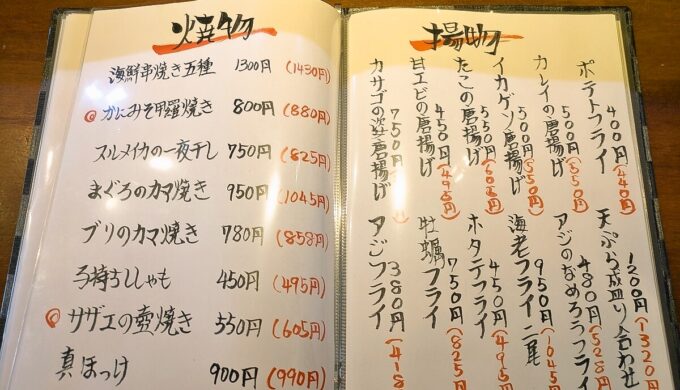 焼物
海鮮串焼き五種 1300円 (1430円)
かにみそ甲羅焼き 800円 (880円)
スルメイカの一夜干し 750円 (825円)
まぐろのカマ焼き 950円 (1045円)
ブリのカマ焼き 780円 (858円)
子持ちししゃも 450円 (495円)
サザエの壺焼き 550円 (605円)
真ほっけ 900円 (990円)
揚物
ポテトフライ 400円 (440円)
カレイの唐揚げ 500円 (550円)
イカゲソ唐揚げ 500円 (550円)
たこの唐揚げ 550円 (605円)
甘エビの唐揚げ 450円 (495円)
カサゴの姿唐揚げ 750円
天ぷら盛り合わせ 1200円 (1320円
アジのおめろうフライ 480円 (528円
海老フライ二尾 950円 (1045
ホタテフライ 450円 (495円
牡蠣フライ 750円 (825円
アジフライ 380円 (418